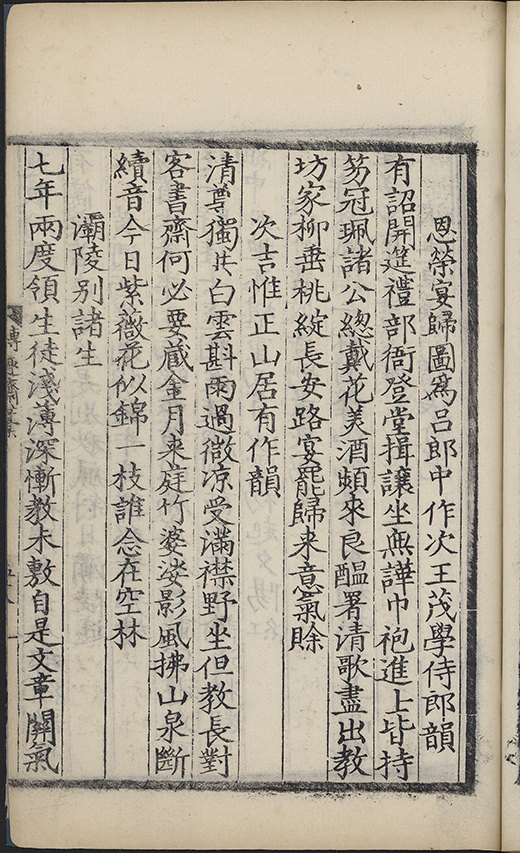 恩榮宴歸圖為呂郎中作次王茂學侍郎韻
有詔開筵禮部衙登堂揖讓坐無譁巾袍進士皆持
笏冠珮諸公總戴花美酒頻來良醞署清歌盡出教
坊家柳垂桃綻長安路宴罷歸来意氣賒
次吉惟正山居有作韻
清尊獨共白雲斟雨過微凉受滿襟野坐但教長對
客書齋何必要藏金月来庭竹婆娑影風拂山泉斷
續音今日紫薇花似錦一枝誰念在空林
灞陵別諸生
七年兩度領生徒淺薄深慚教未敷自是文章關氣